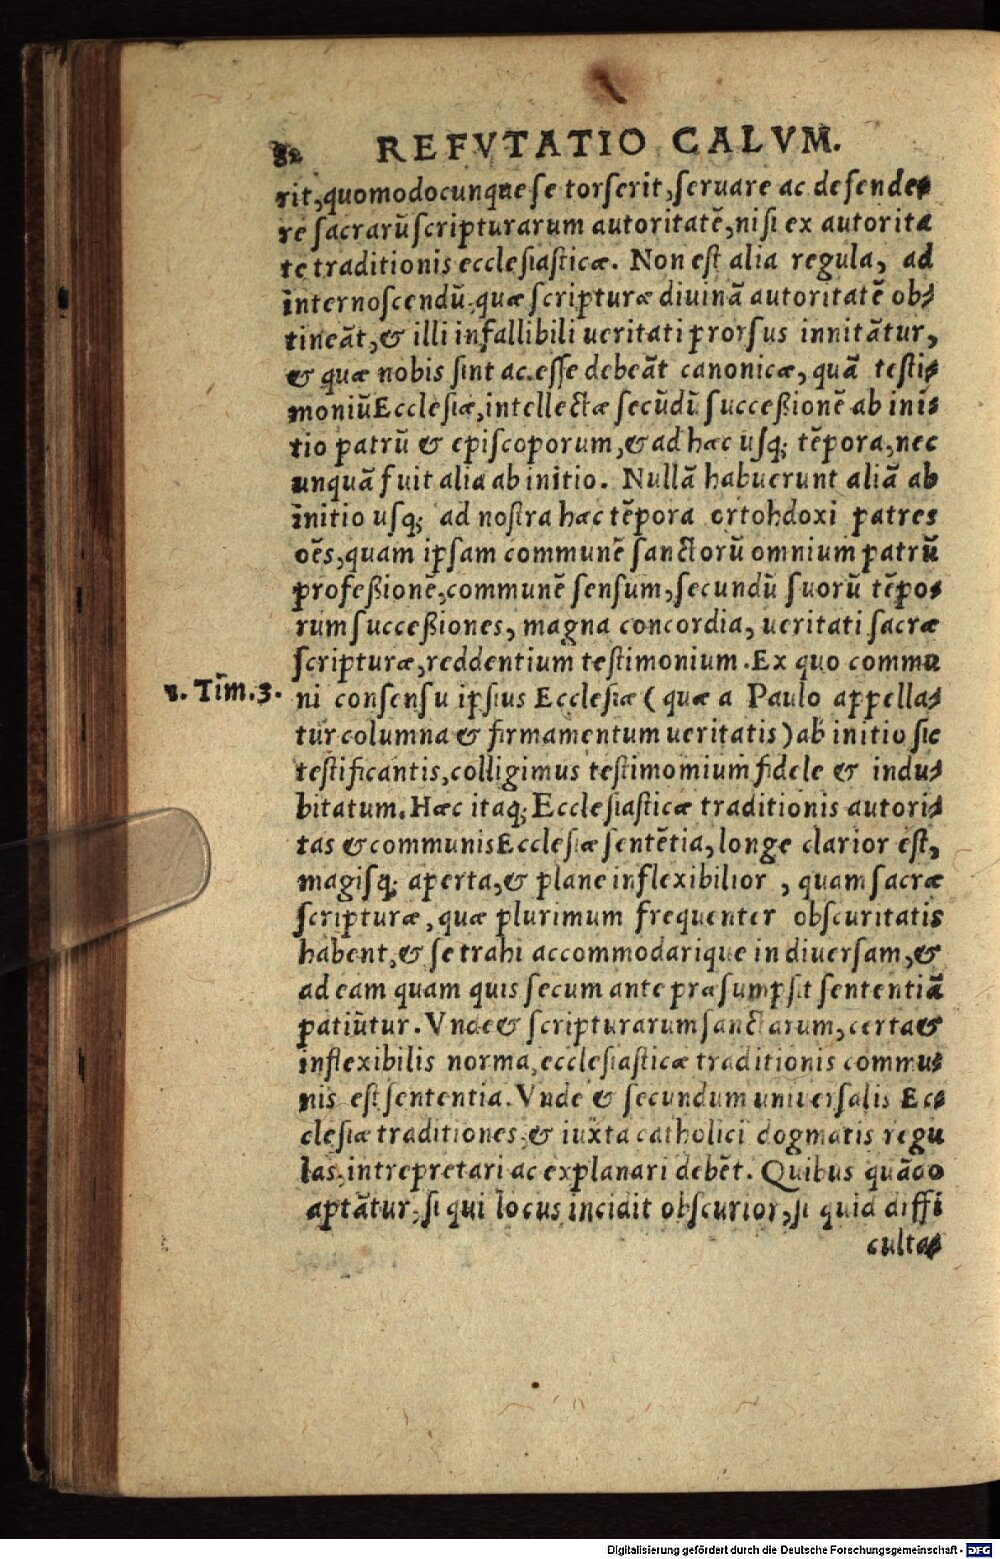 82 REFVTATIO CALVM.
rit, quomodocunque se torserit, seruare ac defende⸗
re sacrarũ scripturarum autoritatẽ, nisi ex autorita
te traditionis ecclesiasticæ. Non est alia regula, ad
internoscendũ, quæ scripturæ diuinã autoritatẽ ob⸗
tineãt, & illi infallibili ueritati prorsus innitãtur,
& quæ nobis sint ac esse debeãt canonicæ, quã testi⸗
moniũ Ecclesiæ, intellectæ secũdũ successionẽ ab ini⸗
tio patrũ & episcoporum, & ad hæc usq; tẽpora, nec
unquã fuit alia ab initio. Nullã habuerunt aliã ab
initio usq; ad nostra hæc tẽpora ortohdoxi patres
oẽs, quam ipsam communẽ sanctorũ omnium patrũ
professionẽ, communẽ sensum, secundũ suorũ tẽpo⸗
rum successiones, magna concordia, ueritati sacræ
scripturæ, reddentium testimonium. Ex quo commu
1. Tim. 3.
ni consensu ipsius Ecclesiæ (quæ a Paulo appella⸗
tur columna & firmamentum ueritatis) ab initio sic
testificantis, colligimus testimomium fidele & indu⸗
bitatum. Hæc itaq; Ecclesiasticæ traditionis autori⸗
tas & communis Ecclesiæ sentẽtia, longe clarior est,
magisq; aperta, & plane inflexibilior, quam sacræ
scripturæ, quæ plurimum frequenter obscuritatis
habent, & se trahi accommodarique in diuersam, &
ad eam quam quis secum ante præsumpsit sententiã
patiũtur. Vnde & scripturarum sanctarum, certa &
inflexibilis norma, ecclesiasticæ traditionis commu⸗
nis est sententia. Vnde & secundum uniuersalis Ec⸗
clesiæ traditiones, & iuxta catholici dogmatis regu
las, intrepretari ac explanari debẽt. Quibus quãdo
aptãtur, si qui locus incidit obscurior, si quid diffi
cultas
Digitalisierung gefördert durch die Deutsche Forschungsgemeinschaft - DFG